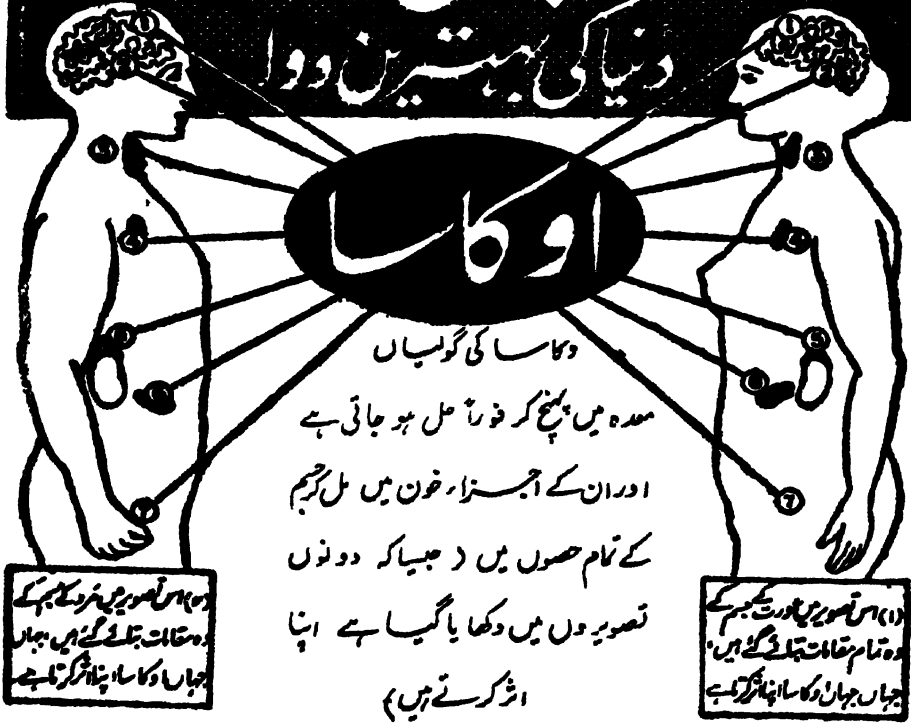 دنیا کی بہترین دوا
اوکاسا
وکاسا کی گولیاں
معدہ میں پہنچ کر فوراً حل ہو جاتی ہے
اور ان کے اجزاء خون میں مل کر جسم
کے تمام حصوں میں ( جیسا کہ دونوں
تصویروں میں دکھایا گیا ہے اپنا
اثر کرتے ہیں)
(۱) اس تصویر میں عورت کے جسم کے
وہ تمام مقامات بتائے گئے ہیں،
جہاں جہاں اوکاسا اپنا اثر کرتا ہے
(۲) اس تصویر میں مرد کے جسم کے
وہ مقامات بتائے گئے ہیں، جہاں
جہاں اوکاسا اپنا اثر کرتا ہے۔
1
3
4
7
1
3
4
5
6
7